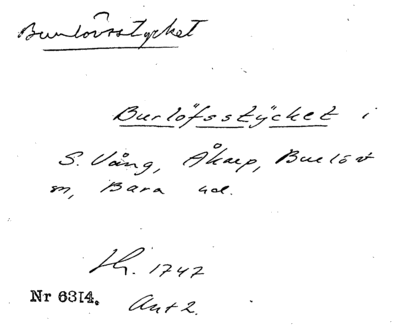 Burlövsstycket
Burlöfsstÿcket i
S. Vång, Åkarp, Burlöv
sn, Bara hd.
Lh. 1747
Nr 6314. Akt 2.